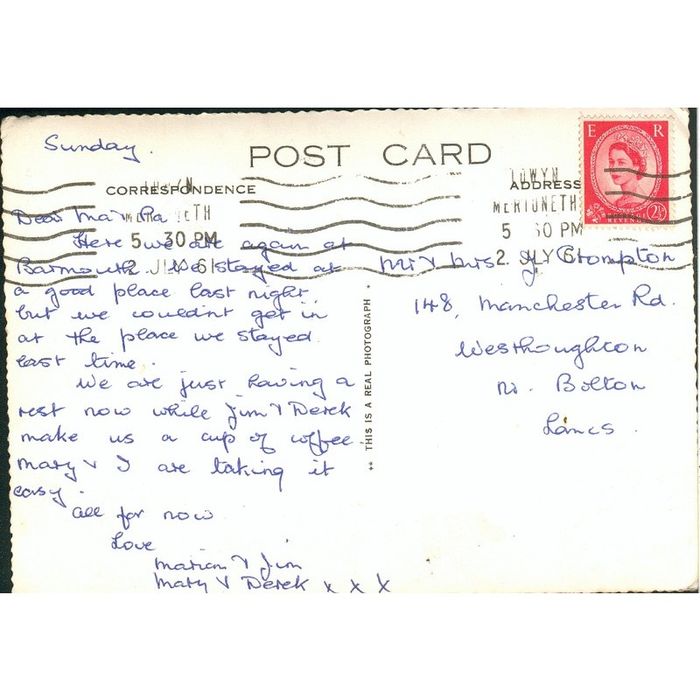 Sunday.
POST CARD
CORRESPONDENCE
ADDRESS
TOWYN
MERIONETH
5 30 PM
2 JLY 61
TOWYN
MERIONETH
5 30 PM
2 JLY 6
E R
2½
Dear Ma & Pa
Here we are again at
Barmouth. We stayed at
a good place last night,
but we couldn't get in
at the place we stayed
last time.
We are just having a
rest now while Jim & Derek
make us a cup of coffee.
Mary & I are taking it
easy.
All for now
Love
Marion & Jim
Mary & Derek x x x
THIS IS A REAL PHOTOGRAPH
Mr & Mrs J Crompton
148, Manchester Rd.
Westhoughton
Nr. Bolton
Lancs.